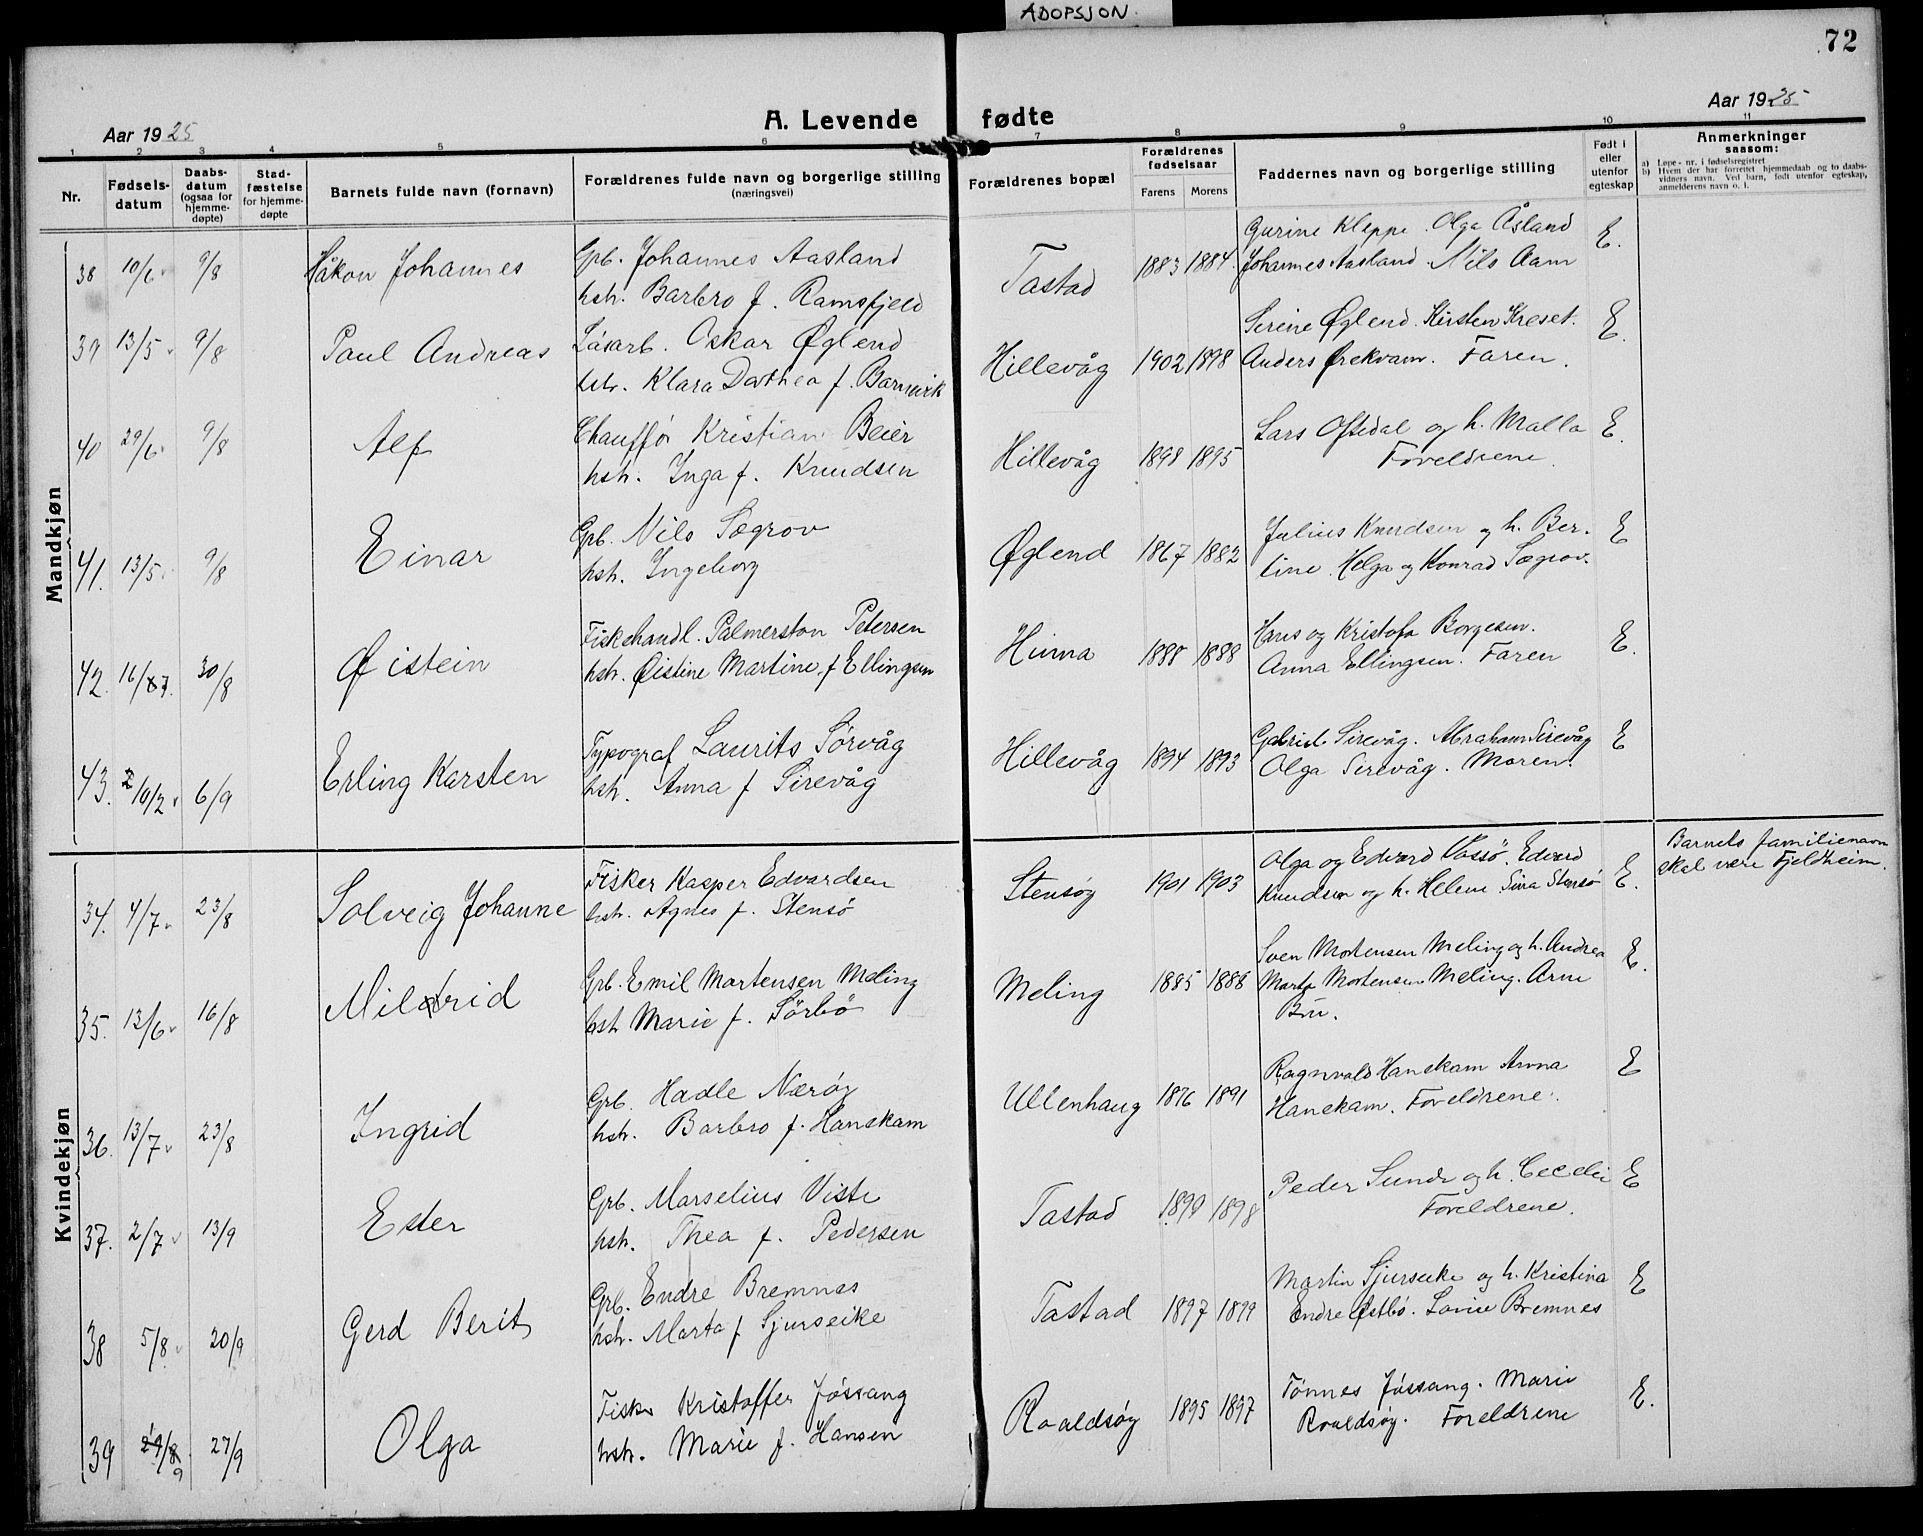 ADOPSJON.
72
Aar 1925
A. Levende fødte
Aar 1925
1 2 3 4 5 6 7 8 9 10 11
Nr.
Fødsels-datum
Daabs-datum (ogsaa for hjemme-døpte)
Stad-fæstelse for hjemme-døpte
Barnets fulde navn (fornavn)
Forældrenes fulde navn og borgerlige stilling
(næringsvei)
Forældrenes bopæl
Forældrenes fødselsaar
Farens Morens
Faddernes navn og borgerlige stilling
Født i eller utenfor egteskap
Anmerkninger
saasom:
a) Løpe-nr. i fødselsregistret
b) Hvem der har forrettet hjemmedaab og to daabs-
vidners navn. Ved barn, født utenfor egteskap,
anmelderens navn o. l.
Mandkjøn
38 10/6 9/8 Håkon Johannes Grb. Johannes Aasland Tastad 1883 1884 Gurine Kleppe. Olga Åsland E.
hstr. Barbro f. Ramsfjeld Johannes Aasland. Nils Aam
39 13/5 9/8 Paul Andreas Løsarb. Oskar Øglend Hillevåg 1902 1898 Serine Øglend. Kirsten Kreset. E.
hstr. Klara Dorthea f. Barnvik Anders Ørekvam. Faren.
40 29/6 9/8 Alf Chauffør Kristian Beier Hillevåg 1898 1895 Lars Oftedal og h. Malla E.
hstr. Inga f. Knudsen Foreldrene.
41. 13/5 9/8 Einar Grb. Nils Sægrov Øglend 1867 1882 Julius Knudsen og h. Ber- E
hstr. Ingeborg tine. Helga og Konrad Sægrov.
42. 16/7. 30/8 Øistein Fiskehandl. Palmerston Petersen Hinna 1888 1888 Hans og Kristofa Borgesen. E.
hstr. Øistine Martine f Ellingsen Anna Ellingsen. Faren
43. 10/2 6/9 Erling Karsten Typograf Laurits Sørvåg Hillevåg 1894 1893 Gabriel Sirevåg. Abraham Sirevåg E
hstr. Anna f Sirevåg Olga Sirevåg. Moren.
Kvindekjøn
34. 4/7 23/8 Solveig Johanne Fisker Kasper Edvardsen Stensøy 1901 1903 Olga og Edvard Vassø. Edvard E. Barnets familienavn
hstr. Agnes f. Stensø Knudsen og h. Helene Sina Stensø skal være Fjeldheim.
35. 12/6 16/8 Mildrid Grb. Emil Mortensen Meling Meling 1885 1886 Sven Mortensen Meling og h. Andrea E.
hstr Marie f. Sörbö Marta Mortensen Meling. Arne
Bru.
36. 13/7 23/8 Ingrid Grb. Hadle Nærøy Ullenhaug 1876 1891 Ragnvald Hanskam Anna E
hstr. Barbro f. Hanskam Hanskam. Foreldrene.
37. 2/7 13/9 Ester Grb. Marselius Viste Tastad 1899 1898 Peder Sunde og h. Cecelie E
hstr. Thea f. Pedersen Foreldrene.
38 5/8 20/9 Gerd Berit Grb. Endre Bremnes Tastad 1897 1899 Martin Sjurseike og h. Kristina E
hstr. Marta f Sjurseike Endre Østbø. Lovise Bremnes
39 27/9 Olga Fisker Kristoffer Jøssang Roaldsøy 1895 1897 Tønnes Jøssang. Marie E.
hstr. Marie f. Hansen Roaldsøy. Foreldrene